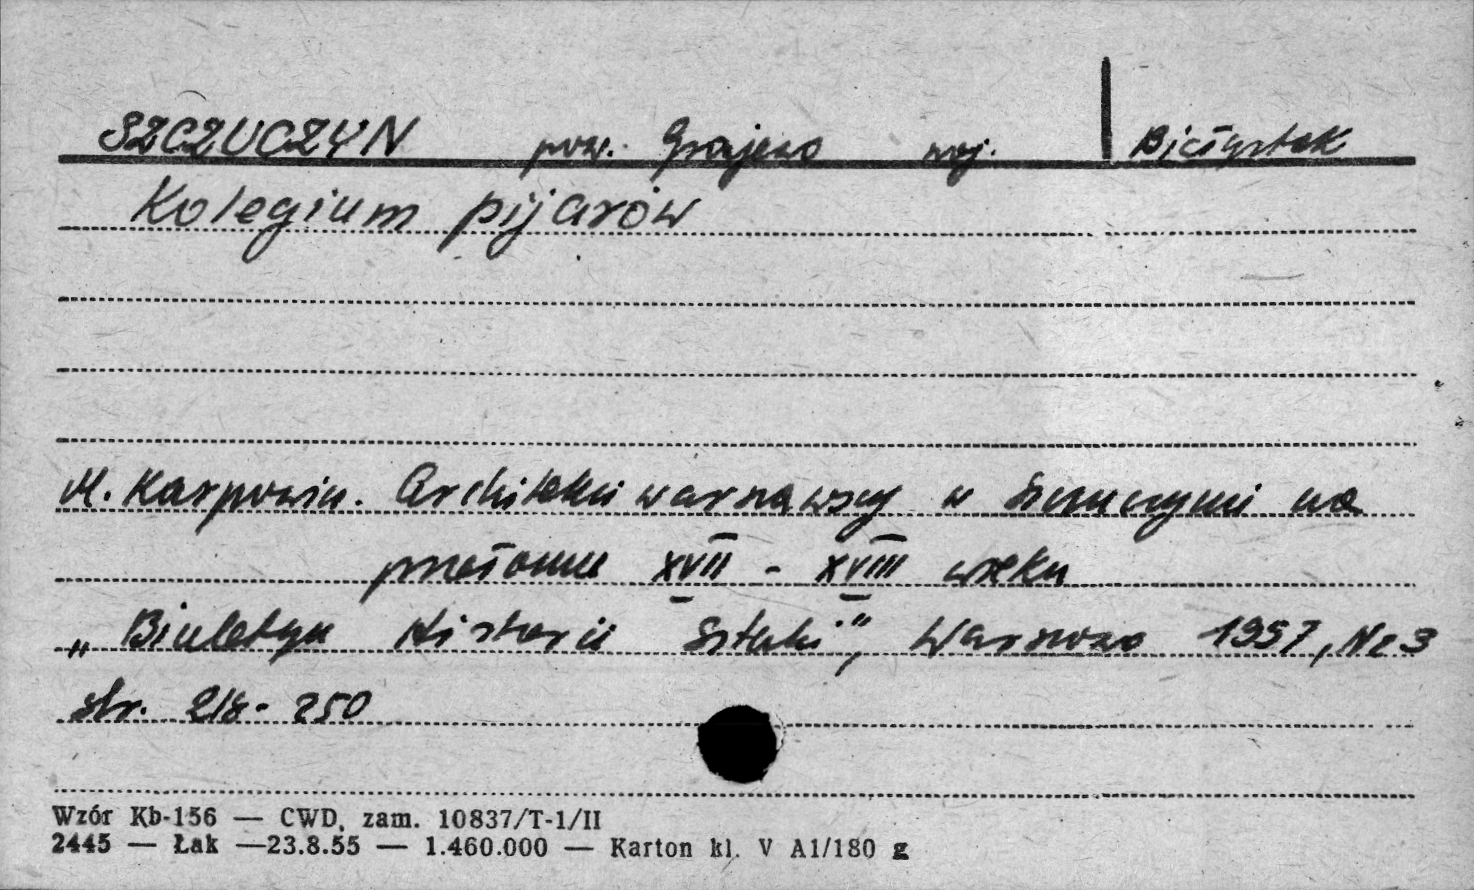 SZCZUCZYN pow. Grajewo woj. Białystok
Kolegium pijarów
M. Karpowicz. Architekci warszawscy w Szczuczynie na
przełomie XVII - XVIII wieku
„Biuletyn Historii Sztuki”, Warszawa 1957, Nr 3
str. 218-250
Wzór Kb-156 — CWD, zam. 10837/T-1/II
2445 — Łak —23.8.55 — 1.460.000 — Karton kl. V A1/180 g